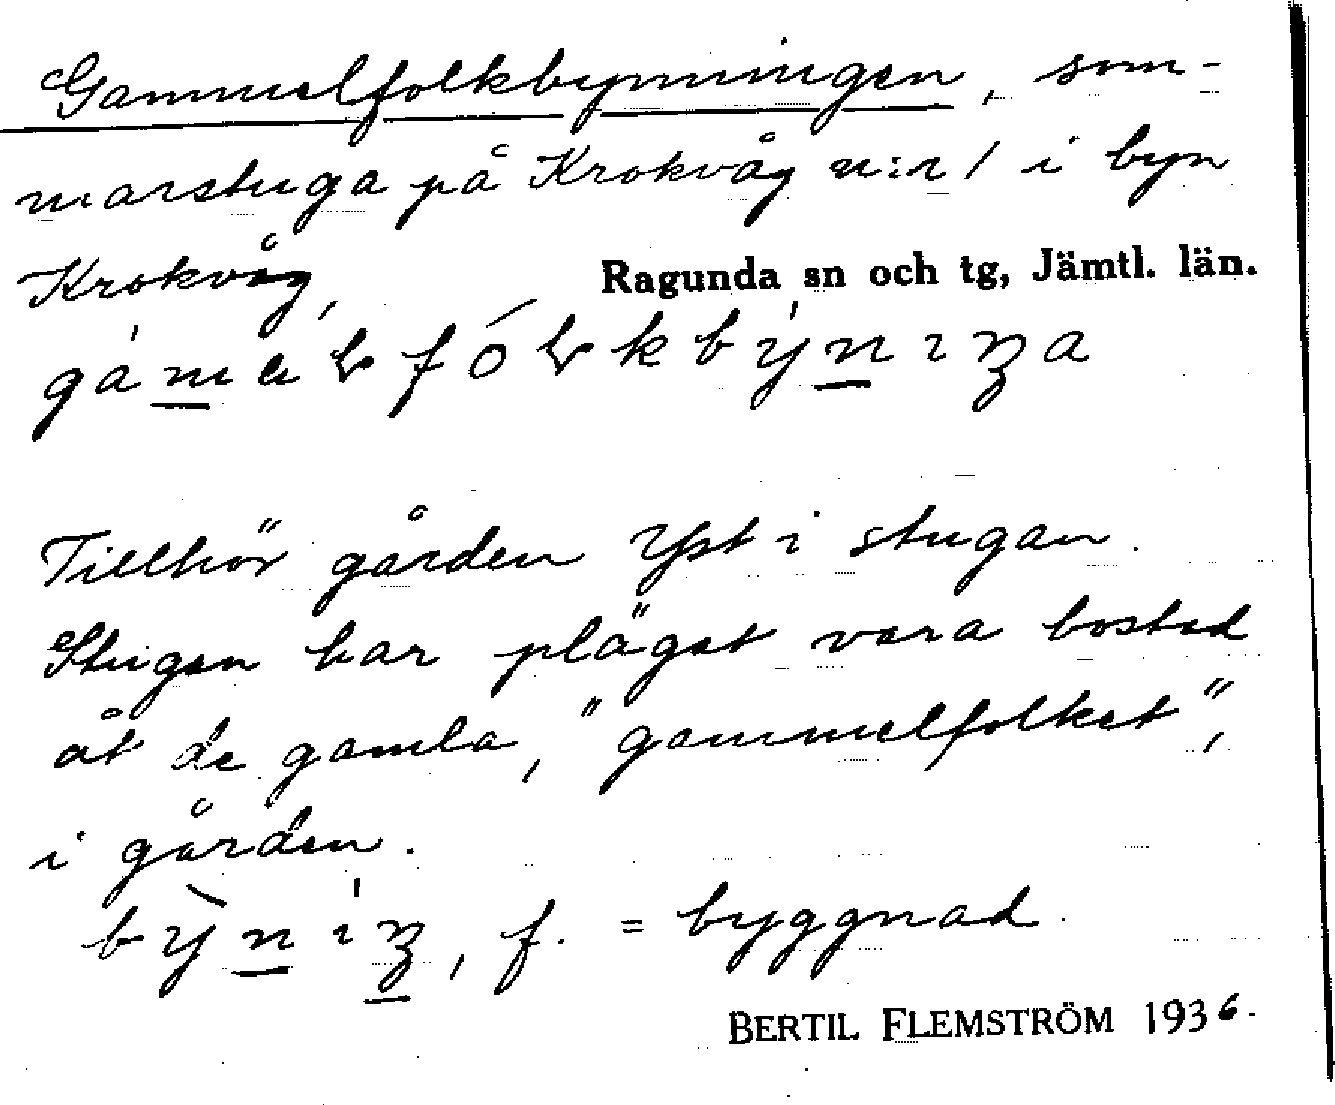 Gammelfolkbynningen, som-
marstuga på Krokvåg n:r 1 i byn
Krokvåg,
Ragunda sn och tg, Jämtl. län.
Tillhör gården Yst i stugan.
Stugan har plägat vara bostad
åt de gamla, "gammelfolket",
i gården.
f. = byggnad.
BERTIL FLEMSTRÖM 1936.